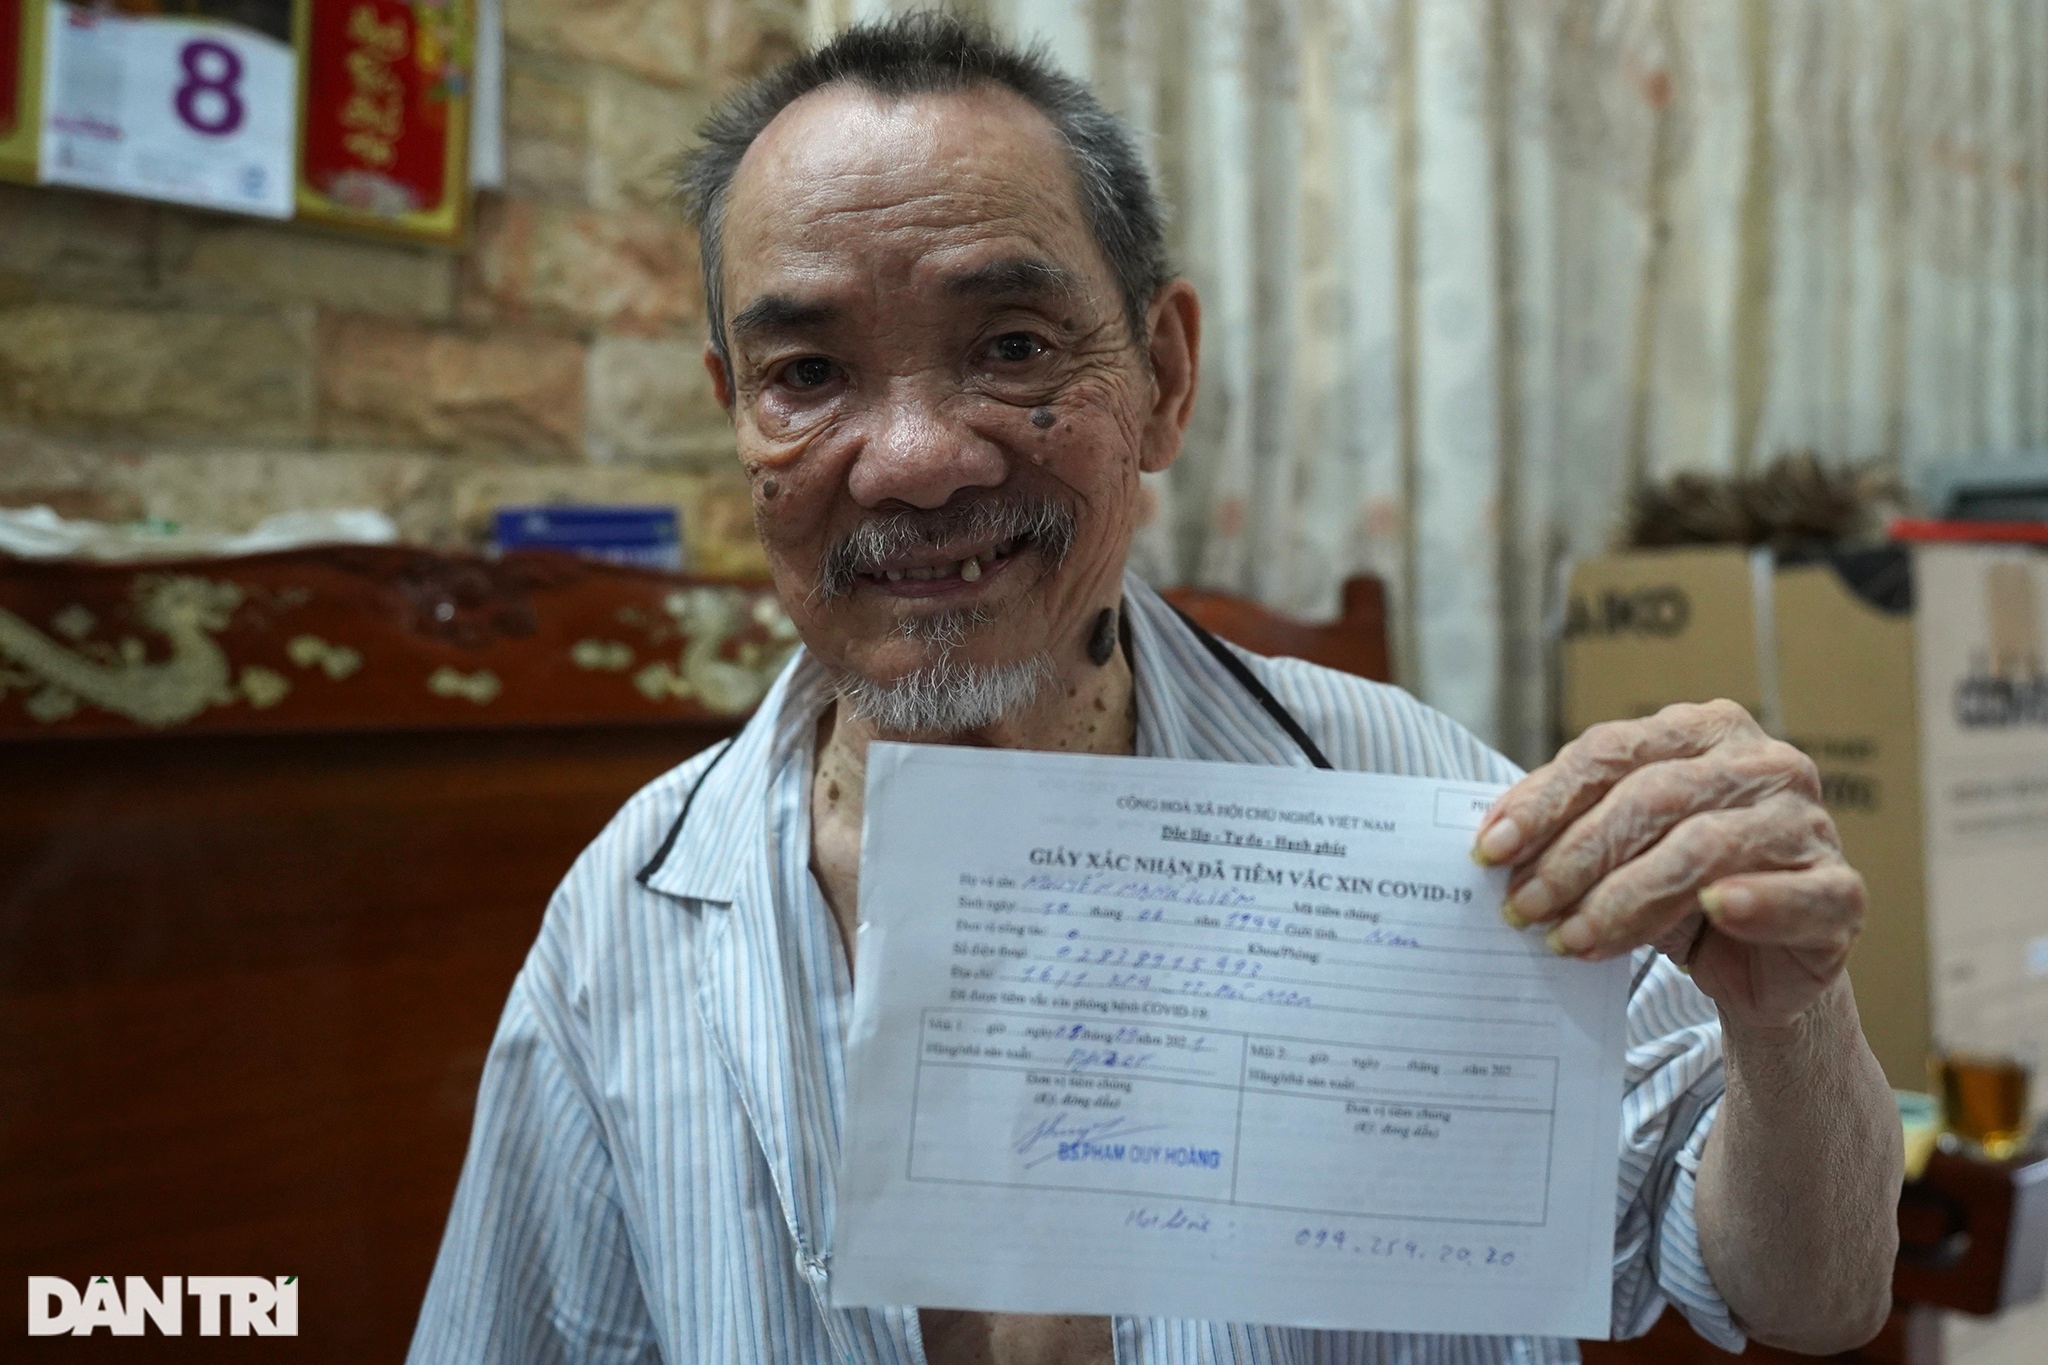 8
AIKO
CỘNG HOÀ XÃ HỘI CHỦ NGHĨA VIỆT NAM
Độc lập - Tự do - Hạnh phúc
GIẤY XÁC NHẬN ĐÃ TIÊM VẮC XIN COVID-19
Họ và tên: NGUYỄN MẠNH Mã tiêm chủng:
Sinh ngày: 10 tháng 02 năm 1944 Giới tính: Nam
Đơn vị công tác: 0 Khoa/Phòng:
Số điện thoại: 02838915993
Địa chỉ: 16/1
Đã được tiêm vắc xin phòng bệnh COVID-19:
Mũi 1 giờ ngày 08 tháng 09 năm 2021
Hãng/nhà sản xuất:
Đơn vị tiêm chủng
(Ký, đóng dấu)
BS.PHẠM DUY HOÀNG
Mũi 2: giờ ngày tháng năm 202
Hãng/nhà sản xuất:
Đơn vị tiêm chủng
(Ký, đóng dấu)
Hotline: 094.259.20.20
DÂN TRÍ